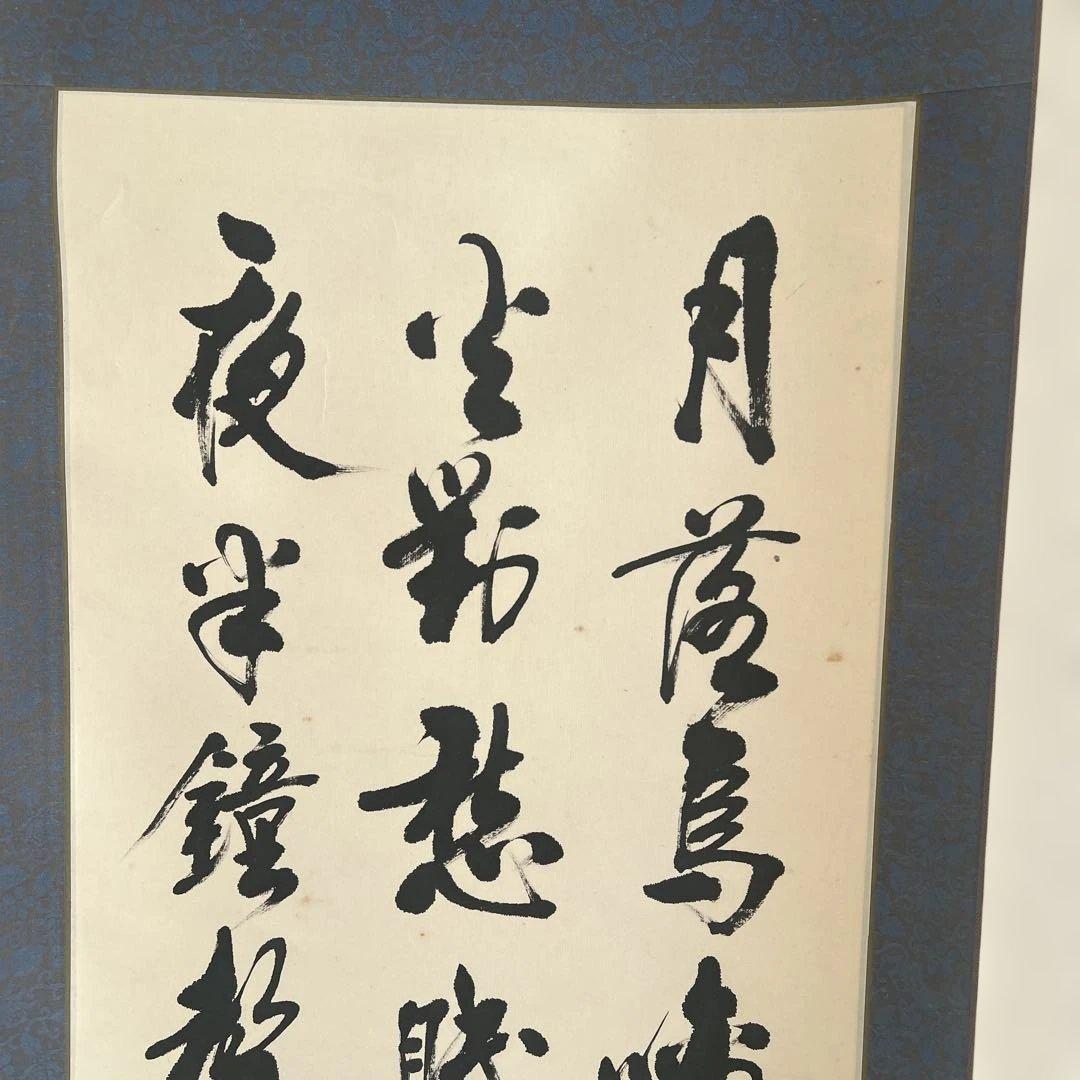 月落烏啼
火對愁眠
夜半鐘聲